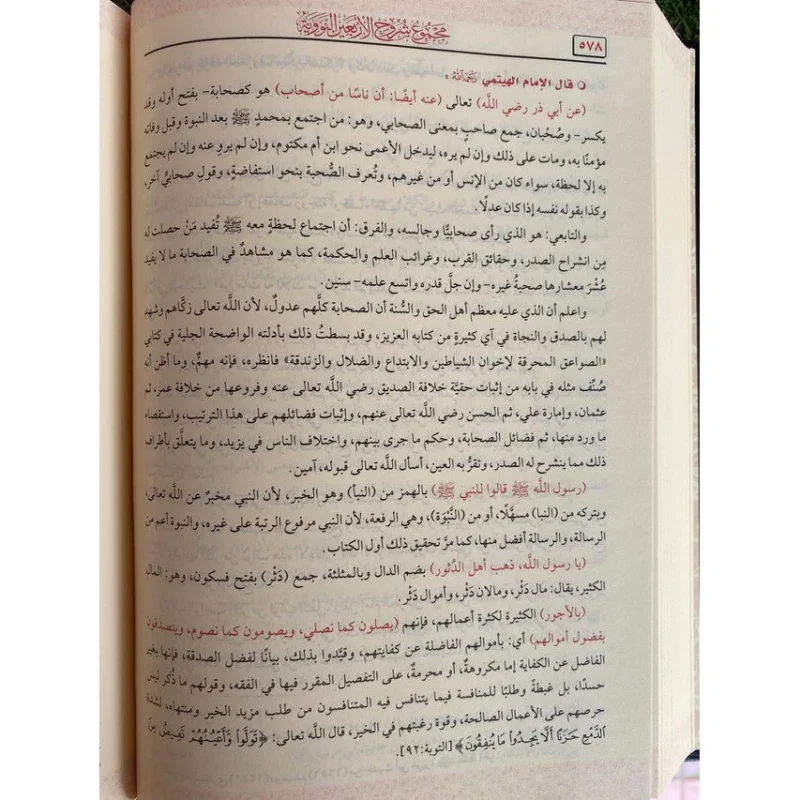 مجموع شروح الأربعين النووية
٥٧٨
○ قال الإمام الهيتمي رحمه الله :
(عن أبي ذر رضي الله) تعالى (عنه أيضًا: أن ناسًا من أصحاب) هو كصحابة- بفتح أوله وقد
يكسر- وصُحْبان، جمع صاحبٍ بمعنى الصحابي، وهو: من اجتمع بمحمدٍ ﷺ بعد النبوة وقبل وفاته
مؤمنًا به، ومات على ذلك وإن لم يره، ليدخل الأعمى نحو ابن أم مكتوم، وإن لم يروِ عنه وإن لم يجتمع
به إلا لحظة، سواء كان من الإنس أو من غيرهم، وتُعرف الصُّحبة بنحو استفاضةٍ، وقولِ صحابيٍّ آخر،
وكذا بقوله نفسه إذا كان عدلًا.
والتابعي: هو الذي رأى صحابيًّا وجالسه، والفرق: أن اجتماع لحظةٍ معه ﷺ تُفيد مَنْ حصلت له
مِن انشراح الصدر، وحقائق القرب، وغرائب العلم والحكمة، كما هو مشاهدٌ في الصحابة ما لا يفيد
عُشْرَ معشارها صحبةُ غيره- وإن جلَّ قدره واتسع علمه- سنين.
واعلم أن الذي عليه معظم أهل الحق والسُّنة أن الصحابة كلَّهم عدولٌ، لأن اللَّه تعالى زكَّاهم وشهد
لهم بالصدق والنجاة في آي كثيرةٍ من كتابه العزيز، وقد بسطتُ ذلك بأدلته الواضحة الجلية في كتابي
«الصواعق المحرقة لإخوان الشياطين والابتداع والضلال والزندقة» فانظره، فإنه مهمٌّ، وما أظن أنه
صُنِّف مثله في بابه من إثبات حقيَّة خلافة الصديق رضي اللَّه تعالى عنه وفروعها من خلافة عمر، ثم
عثمان، وإمارة علي، ثم الحسن رضي اللَّه تعالى عنهم، وإثبات فضائلهم على هذا الترتيب، واستقصاء
ما ورد منها، ثم فضائل الصحابة، وحكم ما جرى بينهم، واختلاف الناس في يزيد، وما يتعلَّق بأطراف
ذلك مما ينشرح له الصدر، وتقرُّ به العين، أسأل اللَّه تعالى قبوله، آمين.
(رسول اللَّه ﷺ قالوا للنبي ﷺ) بالهمز من (النبأ) وهو الخبر، لأن النبي مخبرٌ عن اللَّه تعالى،
وبتركه من (النبا) مسهَّلًا، أو من (النَّبْوَة)، وهي الرفعة، لأن النبي مرفوع الرتبة على غيره، والنبوة أعم من
الرسالة، والرسالة أفضل منها، كما مرَّ تحقيق ذلك أول الكتاب.
(يا رسول اللَّه، ذهب أهل الدُّثور) بضم الدال وبالمثلثة، جمع (دَثْر) بفتح فسكون، وهو: المال
الكثير، يقال: مال دَثْر، ومالان دَثْر، وأموال دَثْر.
(بالأجور) الكثيرة لكثرة أعمالهم، فإنهم (يصلون كما نصلي، ويصومون كما نصوم، ويتصدقون
بفضول أموالهم) أي: بأموالهم الفاضلة عن كفايتهم، وقيَّدوا بذلك، بيانًا لفضل الصدقة، فإنها بغير
الفاضل عن الكفاية إما مكروهةٌ، أو محرمةٌ، على التفصيل المقرر فيها في الفقه، وقولهم ما ذُكر ليس
حسدًا، بل غبطةً وطلبًا للمنافسة فيما يتنافس فيه المتنافسون من طلب مزيد الخير ومنتهاه، لشدة
حرصهم على الأعمال الصالحة، وقوة رغبتهم في الخير، قال اللَّه تعالى: ﴿تَوَلَّوا وَّأَعْيُنُهُمْ تَفِيضُ مِنَ
الدَّمْعِ حَزَنًا أَلَّا يَجِدُوا مَا يُنفِقُونَ﴾ [التوبة: ٩٢].